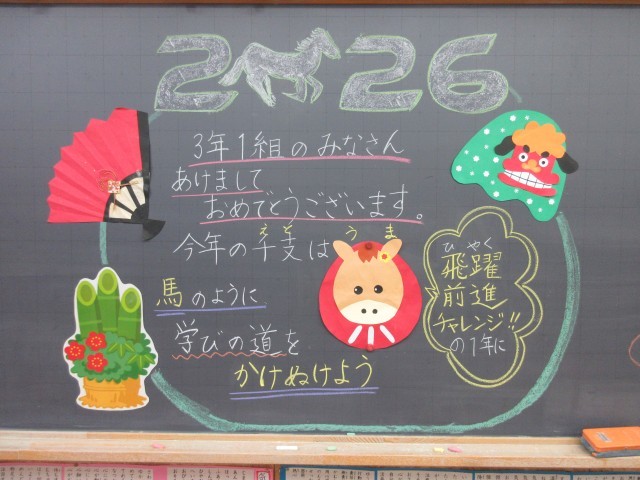 2026
3年1組のみなさん
あけまして
おめでとうございます。
今年の干支は
えと
うま
馬のように
学びの道を
かけぬけよう
ひやく
飛躍
前進
チャレンジ!!
の1年に